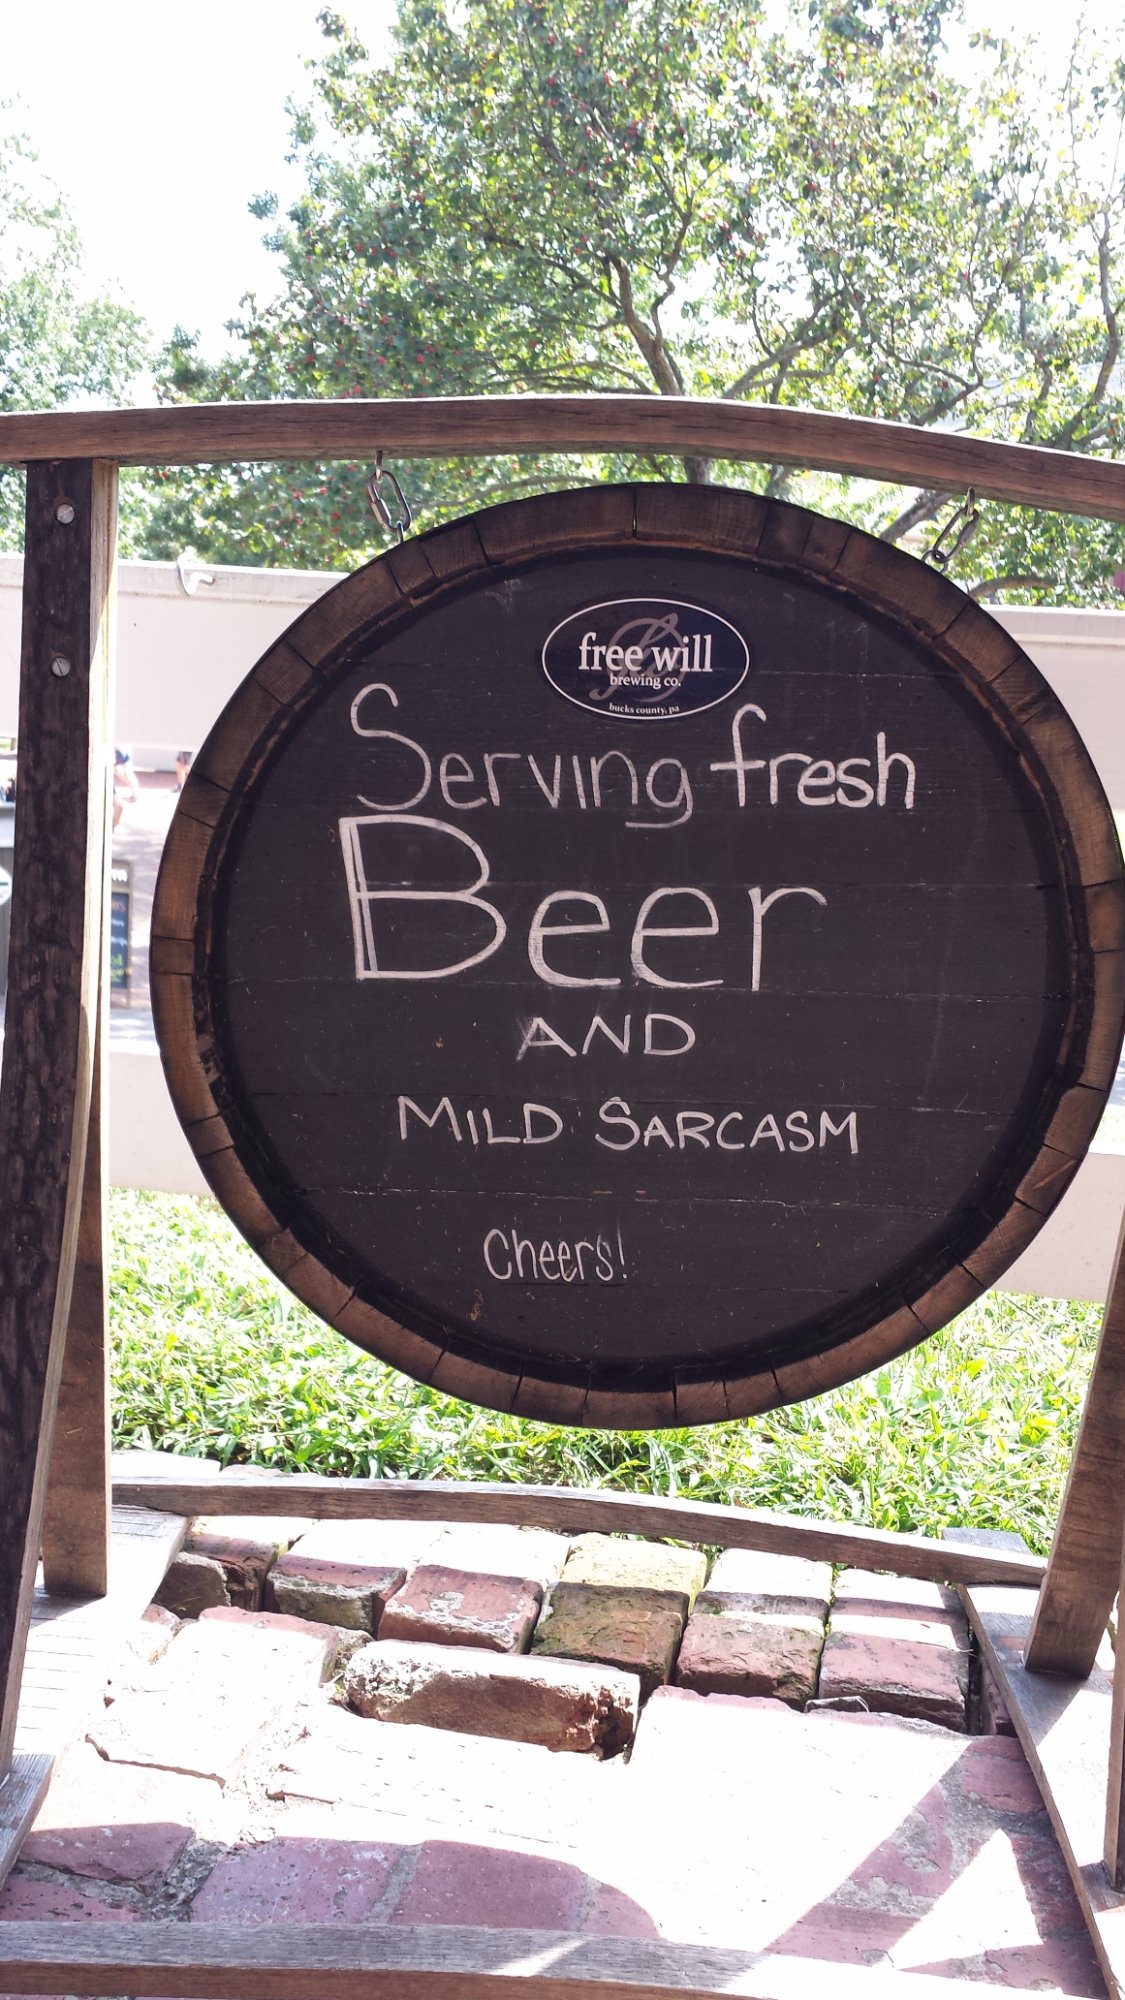 free will
brewing co.
bucks county, pa
Serving fresh
Beer
AND
MILD SARCASM
Cheers!